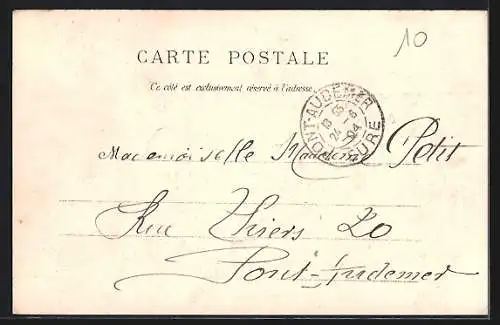 10
CARTE POSTALE
Ce côté est exclusivement réservé à l'adresse
PONT-AUDEMER
EURE
24 -6
04
Mademoiselle Madeleine Petit
Rue Thiers 20
Pont-Audemer